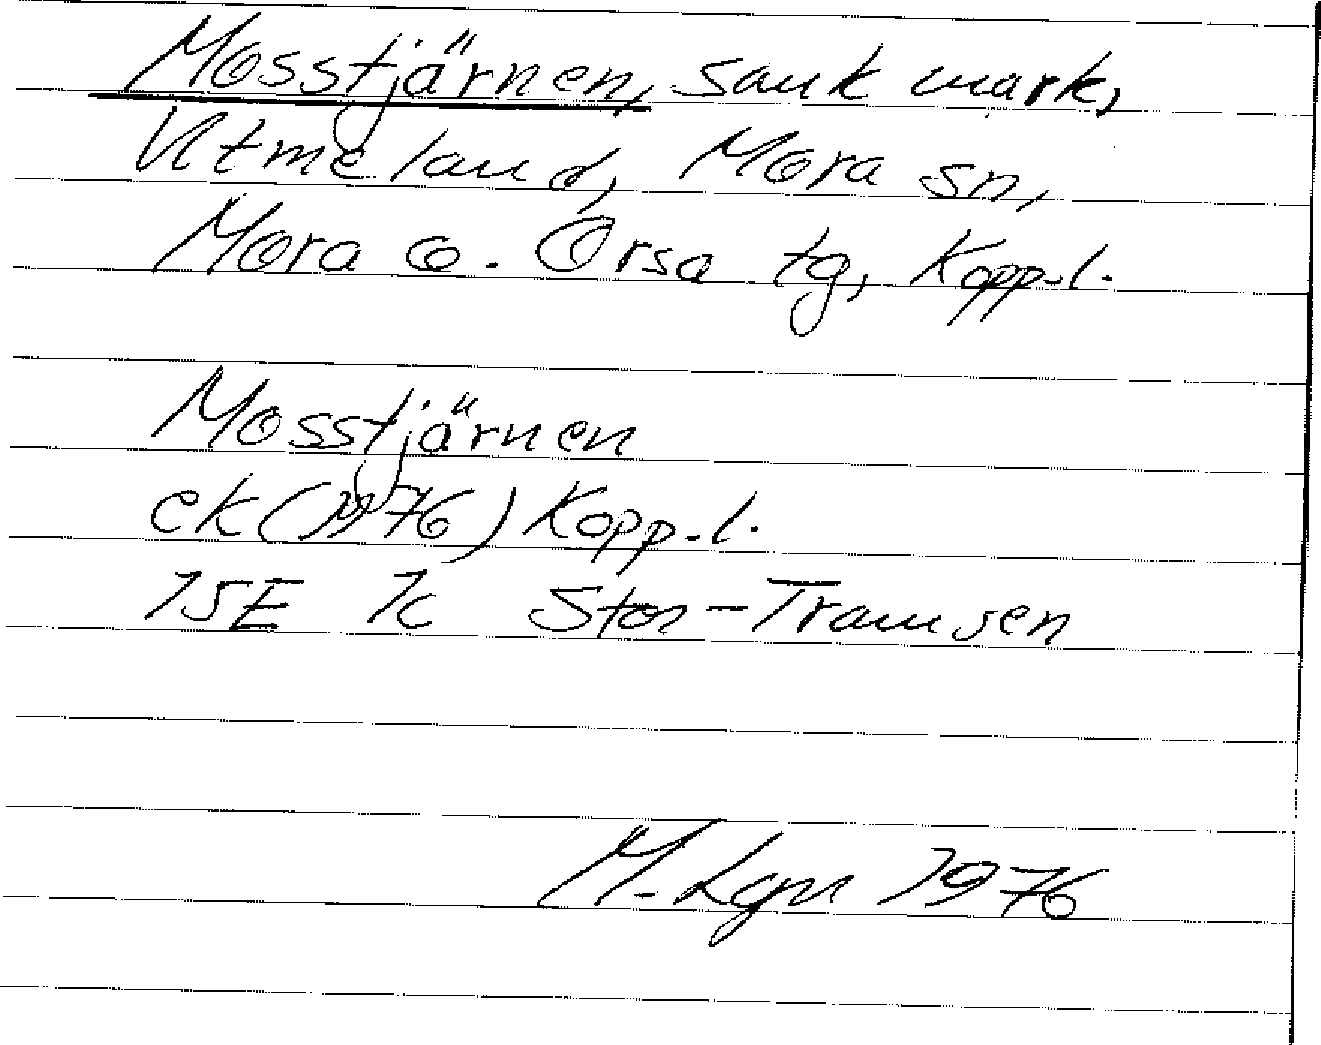 Mosstjärnen, sank mark,
Utmeland, Mora sn,
Mora o. Orsa tg, Kopp.l.
Mosstjärnen
ek (1976) Kopp.l.
15E 1c Stor-Tramsen
M. Lgn 1976